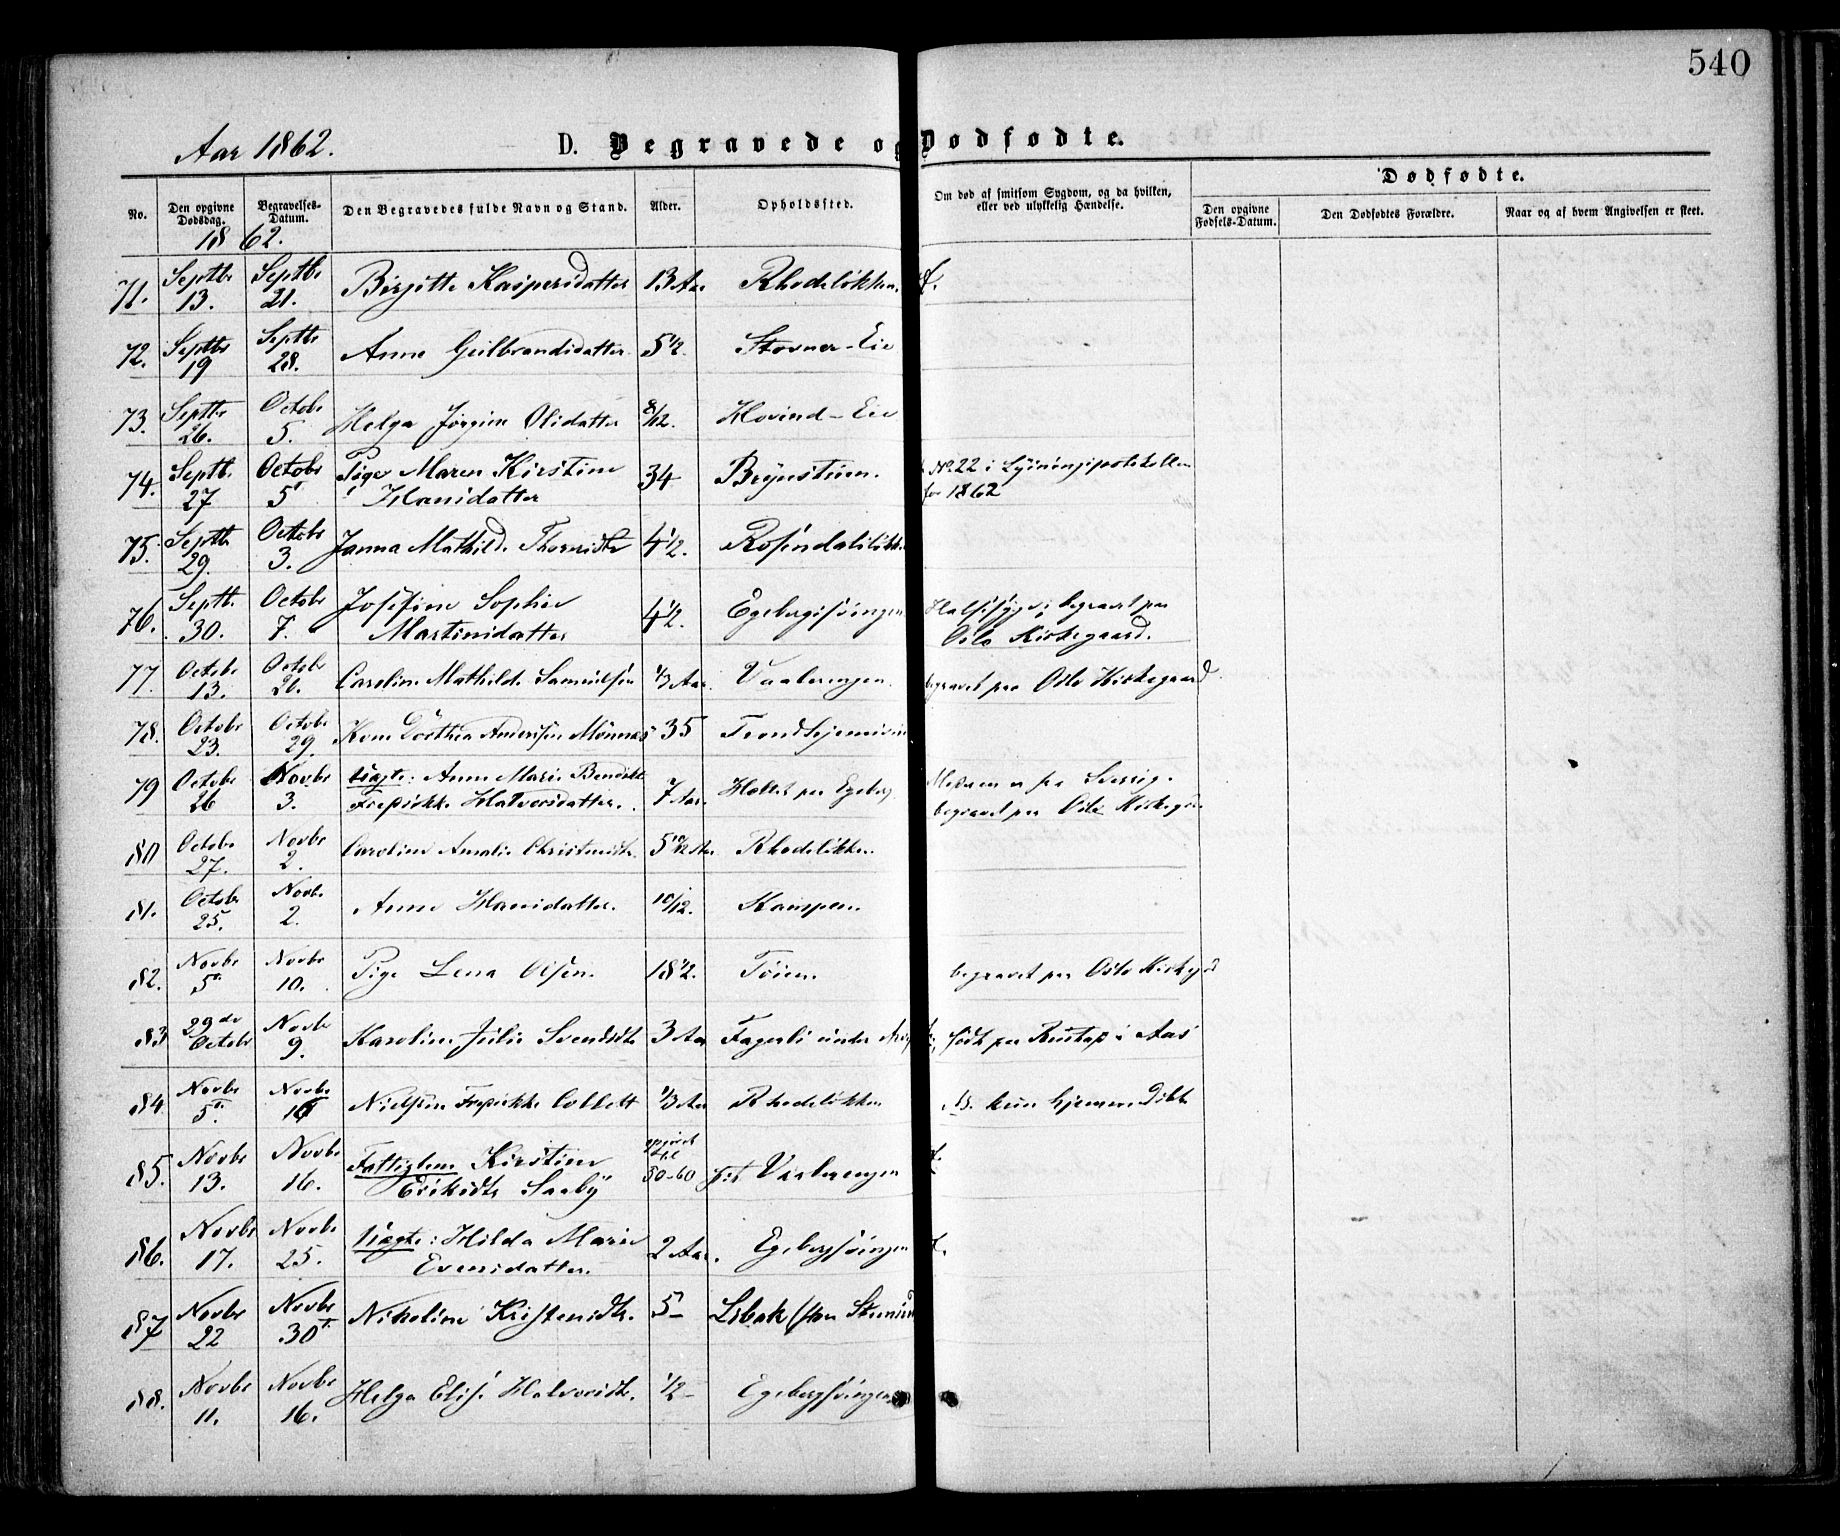 540
Aar 1862.
D. Begravede og Dødfødte.
No.
Den opgivne Dødsdag.
Begravelses-Datum.
Den Begravedes fulde Navn og Stand.
Alder.
Opholdssted.
Om død af smitsom Sygdom, og da hvilken, eller ved ulykkelig Hændelse.
Dødfødte.
Den opgivne Fødsels-Datum.
Den Dødfødtes Forældre.
Naar og af hvem Angivelsen er skeet.
1862.
71. Septbr 13. Septbr 21. Birgitte Kaspersdatter 13 Aar Rhodeløkken
72. Septbr 19 Septbr 28. Anne Gulbrandsdatter 5 1/2. Stovner-Eie
73. Septbr 26. Octobr 5. Helga Jørgine Olsdatter 8/12. Hovind-Eie
74. Septb. 27 Octobr 5 Pige Maren Kirstine Hansdatter 34 Brynstuen. No 22 i Lysningsprotokollen for 1862
75. Septb. 29. Octobr 3. Janna Mathilde 4 1/2. Rosendalsløkk
76. Septb. 30. Octobr 7. Josefine Sophie Martinsdatter 4 1/2. Egebergsvingen Halssyge; begravet paa Oslo Kirkegaard.
77. Octobr 13. Octobr Caroline Mathilde Samuelsen 1/3 Aar. Vaalerengen begravet paa Oslo Kirkegaard
78. Octobr 23. Octobr 29. Kone Dorthea Andersen 35 Trondhjemsvei
79 Octobr 26 Novbr 3. Uægte: Anne Marie Fredrikke Halvorsdatter. 7 Aar. paa Egeberg Moderen er fra Sverrig. begravet paa Oslo Kirkegd
80 Octobr 27. Novbr 2. Caroline Amalie 5 10/12 Aar Rhodeløkken.
81. Octobr 25. Novbr 2. Anne Hansdatter. 10/12. Kampen.
82. Novbr 5. Novbr 10. Pige Lena Olsen. 18 1/2. Tøien. begravet paa Oslo Kirkegd
83 29de Octobr Novbr 9. Karoline Julie Svendsdt 3 Aar Fagerli under født paa Rustad i Aas
84 Novbr 5. Novbr 16 Fredrikke Collett 1/3 Aar Rhodeløkken NB. kun hjemmedøbt
85. Novbr 13. Novbr 16. Fattiglem Kirstine Eriksdtr Saxby opgivet til 50-60 Vaalerengen
86. Novbr 17. Novbr 25. Uægte: Hilda Marie Evensdatter. 2 Aar. Egebergsvingen
87 Novbr 22 Novbr 30 Nikoline Kristensdtr. 5 -
88. Novbr 11. Novbr 16. Helga Elise Halvorsdtr. 1/2 - Egebergsvingen